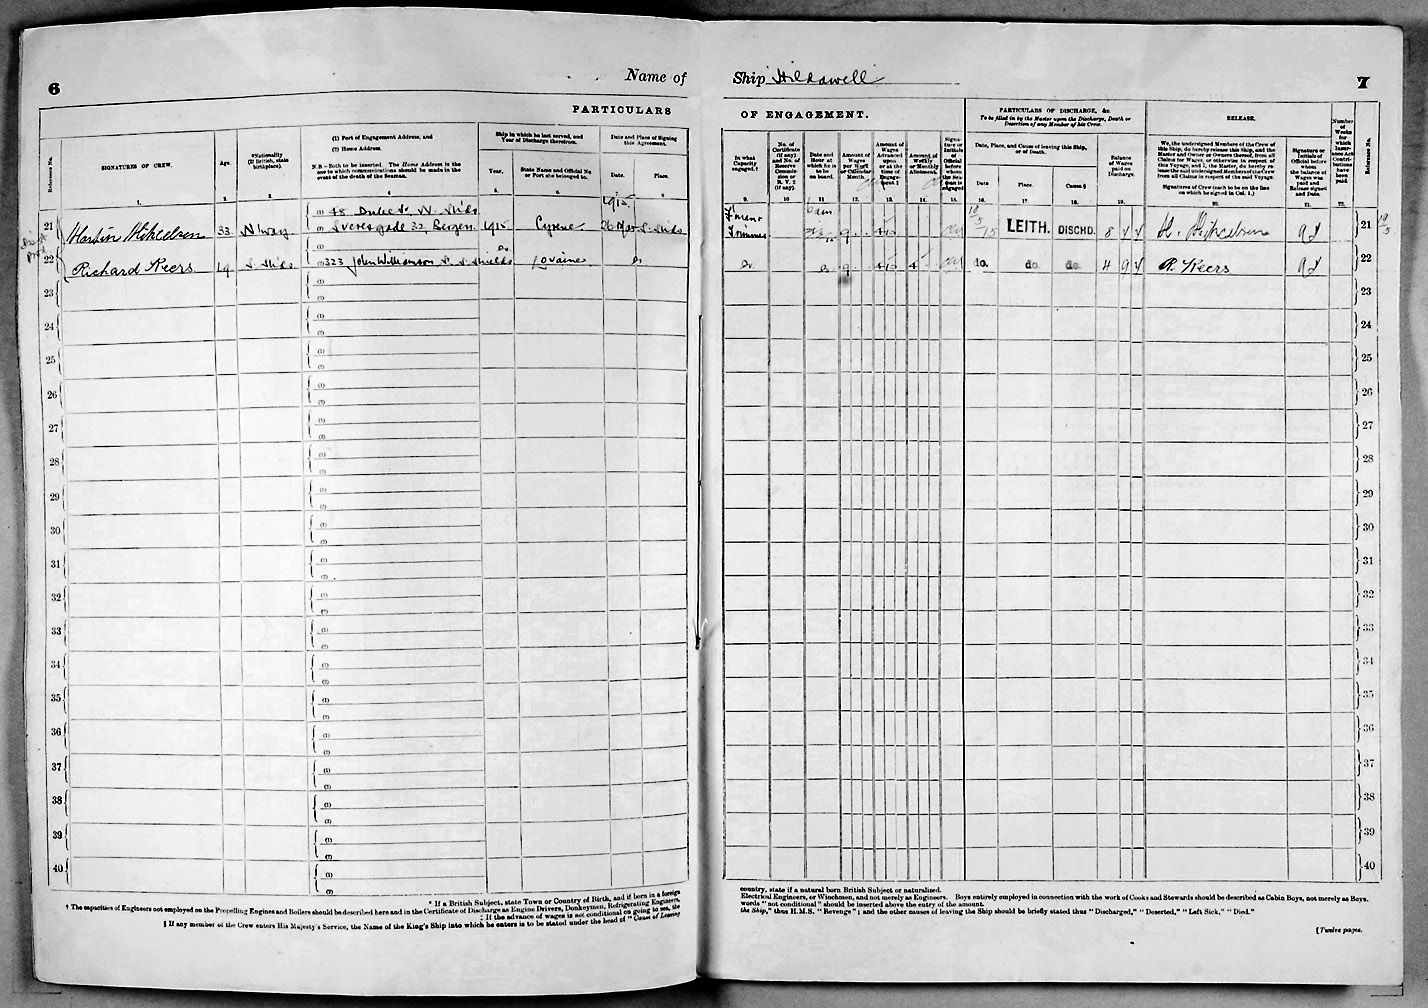 6
Name of
PARTICULARS
Reference No.
SIGNATURES OF CREW.
Age.
*Nationality
(If British, state
birthplace).
(1) Port of Engagement Address, and
(2) Home Address.
N.B.—Both to be inserted. The Home Address is the
one to which communications should be made in the
event of the death of the Seaman.
Ship in which he last served, and
Year of Discharge therefrom.
Year.
State Name and Official No
or Port she belonged to.
Date and Place of Signing
this Agreement.
Date.
Place.
1. 2. 3. 4 5. 6. 7. 8.
1915
21 33. N'way
(1) 48 Duke St N. Slds
Sveresgade 32, Bergen 1915 Cyrene 26 Mar S. Slds
22 Richard Keers 19. S. Slds
(1) Do
(2) 323 John Williamson St. S. Shields Lovaine Do
23
24
25
26
27
28
29
30
31
32
33
34
35
36
37
38
39
40
* If a British Subject, state Town or Country of Birth, and if born in a foreign
† The capacities of Engineers not employed on the Propelling Engines and Boilers should be described here and in the Certificate of Discharge as Engine Drivers, Donkeymen, Refrigerating Engineers,
‡ If the advance of wages is not conditional on going to sea, the
§ If any member of the Crew enters His Majesty's Service, the Name of the King's Ship into which he enters is to be stated under the head of "Cause of Leaving
Ship Hildawell
7
OF ENGAGEMENT.
PARTICULARS OF DISCHARGE, &c.
To be filled in by the Master upon the Discharge, Death or
Desertion of any Member of his Crew.
RELEASE.
In what
Capacity
engaged.†
No. of
Certificate
(if any)
and No. of
Reserve
Commis-
sion or
R. V. 2
(if any).
Date and
Hour at
which he is
to be
on board.
Amount of
Wages
per Week
or Calendar
Month.
Amount of
Wages
Advanced
upon
or at the
time of
Engage-
ment.‡
Amount of
Weekly
or Monthly
Allotment.
Signa-
ture or
Initials
of
Official
before
whom
the Sea-
man is
engaged
Date, Place, and Cause of leaving this Ship,
or of Death.
Date
Place.
Cause.§
Balance
of Wages
paid on
Discharge.
We, the undersigned Members of the Crew of
this Ship, do hereby release this Ship, and the
Master and Owner or Owners thereof, from all
Claims for Wages, or otherwise in respect of
this Voyage, and I, the Master, do hereby re-
lease the said undersigned Members of the Crew
from all Claims in respect of the said Voyage.
Signatures of Crew (each to be on the line
on which he signed in Col. 1.)
Signature or
Initials of
Official before
whom
the balance of
Wages was
paid and
Release signed
and Date.
Number
of
Weeks
for
which
Insur-
ance Act
Contri-
butions
have
been
paid.
Reference No.
9. 10 11 12. 13. 14. 15. 16. 17. 18. 19. 20. 21. 22.
6 am
F'man &
Trimmer 9 LEITH. DISCHD. 8 21
Do Do 9 do. do. do. 4 9 R. Keers 22
23
24
25
26
27
28
29
30
31
32
33
34
35
36
37
38
39
40
country, state if a natural born British Subject or naturalized.
Electrical Engineers, or Winchmen, and not merely as Engineers. Boys entirely employed in connection with the work of Cooks and Stewards should be described as Cabin Boys, not merely as Boys.
words "not conditional" should be inserted above the entry of the amount.
the Ship," thus H.M.S. "Revenge"; and the other causes of leaving the Ship should be briefly stated thus "Discharged," "Deserted," "Left Sick," "Died."
[Twelve pages.